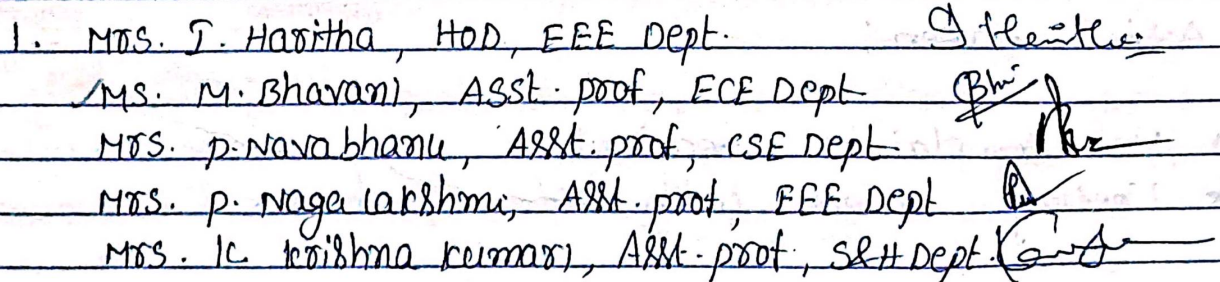 1. Mrs. J. Haritha, HOD, EEE Dept.
Ms. M. Bhavani, Asst. prof, ECE Dept
Mrs. P. Navabhanu, Asst. prof, CSE Dept
Mrs. P. Naga lakshmi, Asst. prof, EEE Dept
Mrs. K Krishna kumari, Asst. prof, S&H Dept.